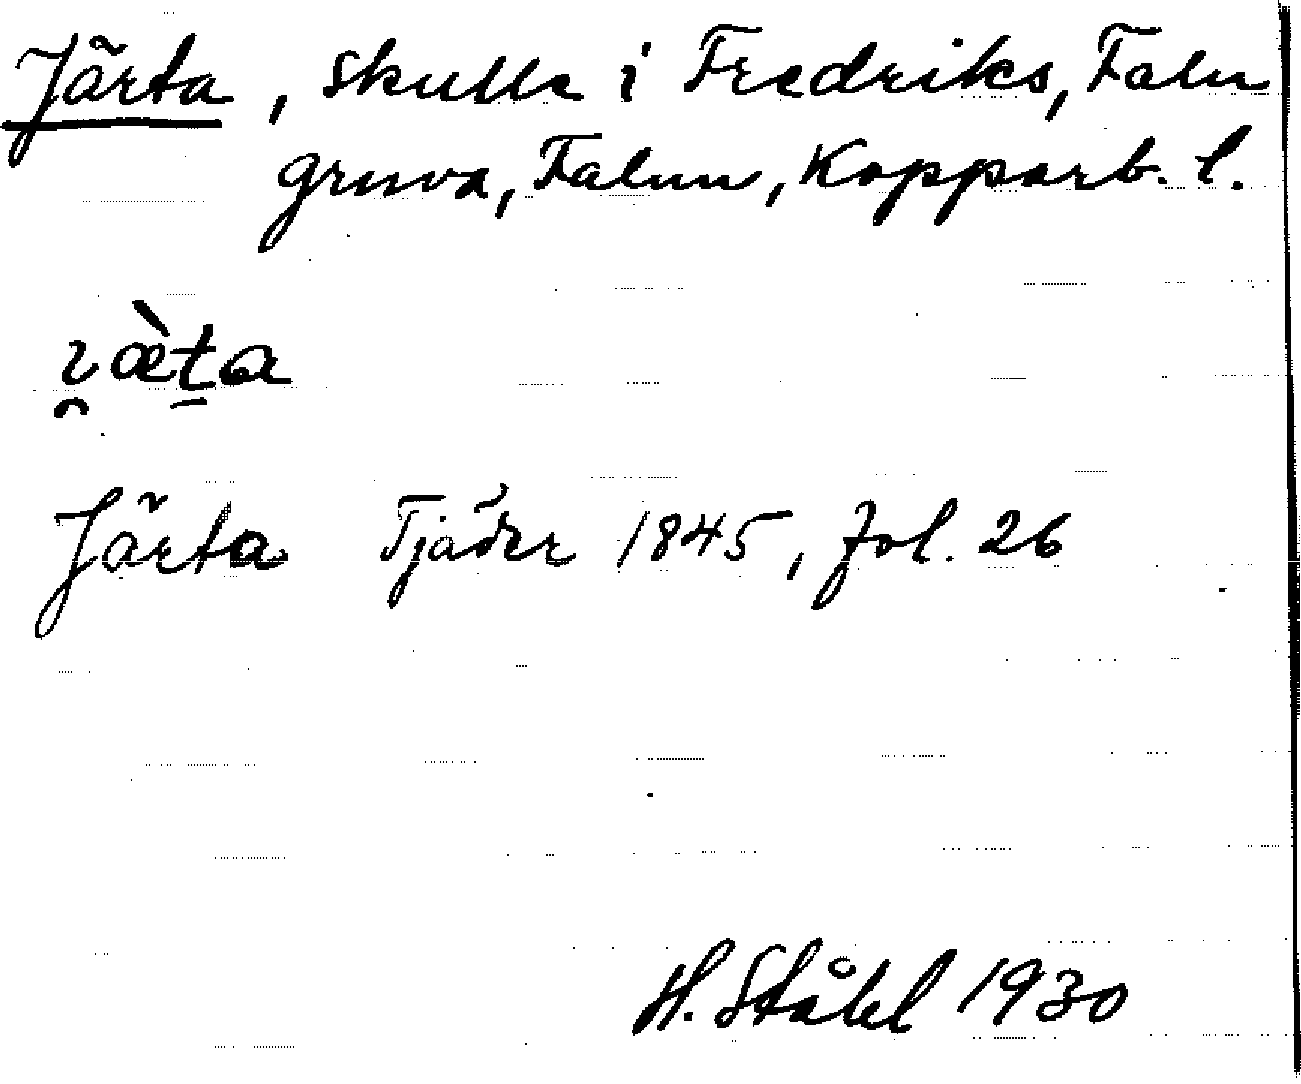 Järta, skulle i Fredriks, Falu
gruva, Falun, Kopparb. l.
i̯æ̀ṯa
Järta Tjäder 1845, fol. 26
H. Ståhl 1930